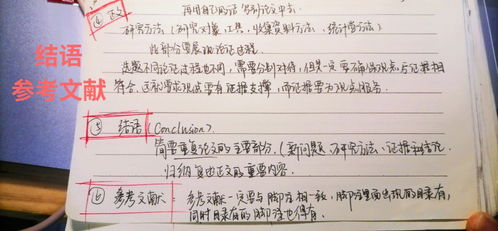 再用自己的话写到论文中去.
④ 正文
研究方法(研究对象、工具、收集资料方法、统计学方法)
此部分要展现论证过程.
选题不同论证过程也不同,需要分别对待,但是一定要确保观点与证据相
符合.这就要求观点要有证据支撑,而证据要为观点服务.
结语
参考文献
⑤ 结语 (Conclusion).
简要重复论文的主要部分.(新问题、研究方法、证据和结论.
归纳复述正文的重要内容.
⑥ 参考文献: 参考文献一定要与脚注相一致,脚注里面出现的目录有,
同时目录有的脚注也得有.